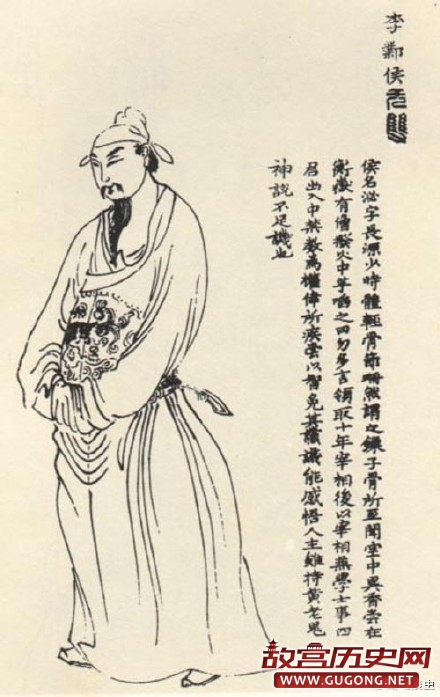 李鄴侯
侯名泌字長源少時體輕骨節珊然謂之鎖子骨所至聞室中異香嘗在
衡嶽有僧撥火中芋啗之曰勿多言領取十年宰相後以宰相兼學士事四
君出入中禁數為權倖所疾嘗以智免其讜議能感悟人主雖持黃老鬼
神說不足譏也
故宫历史网
WWW.GUGONG.NET